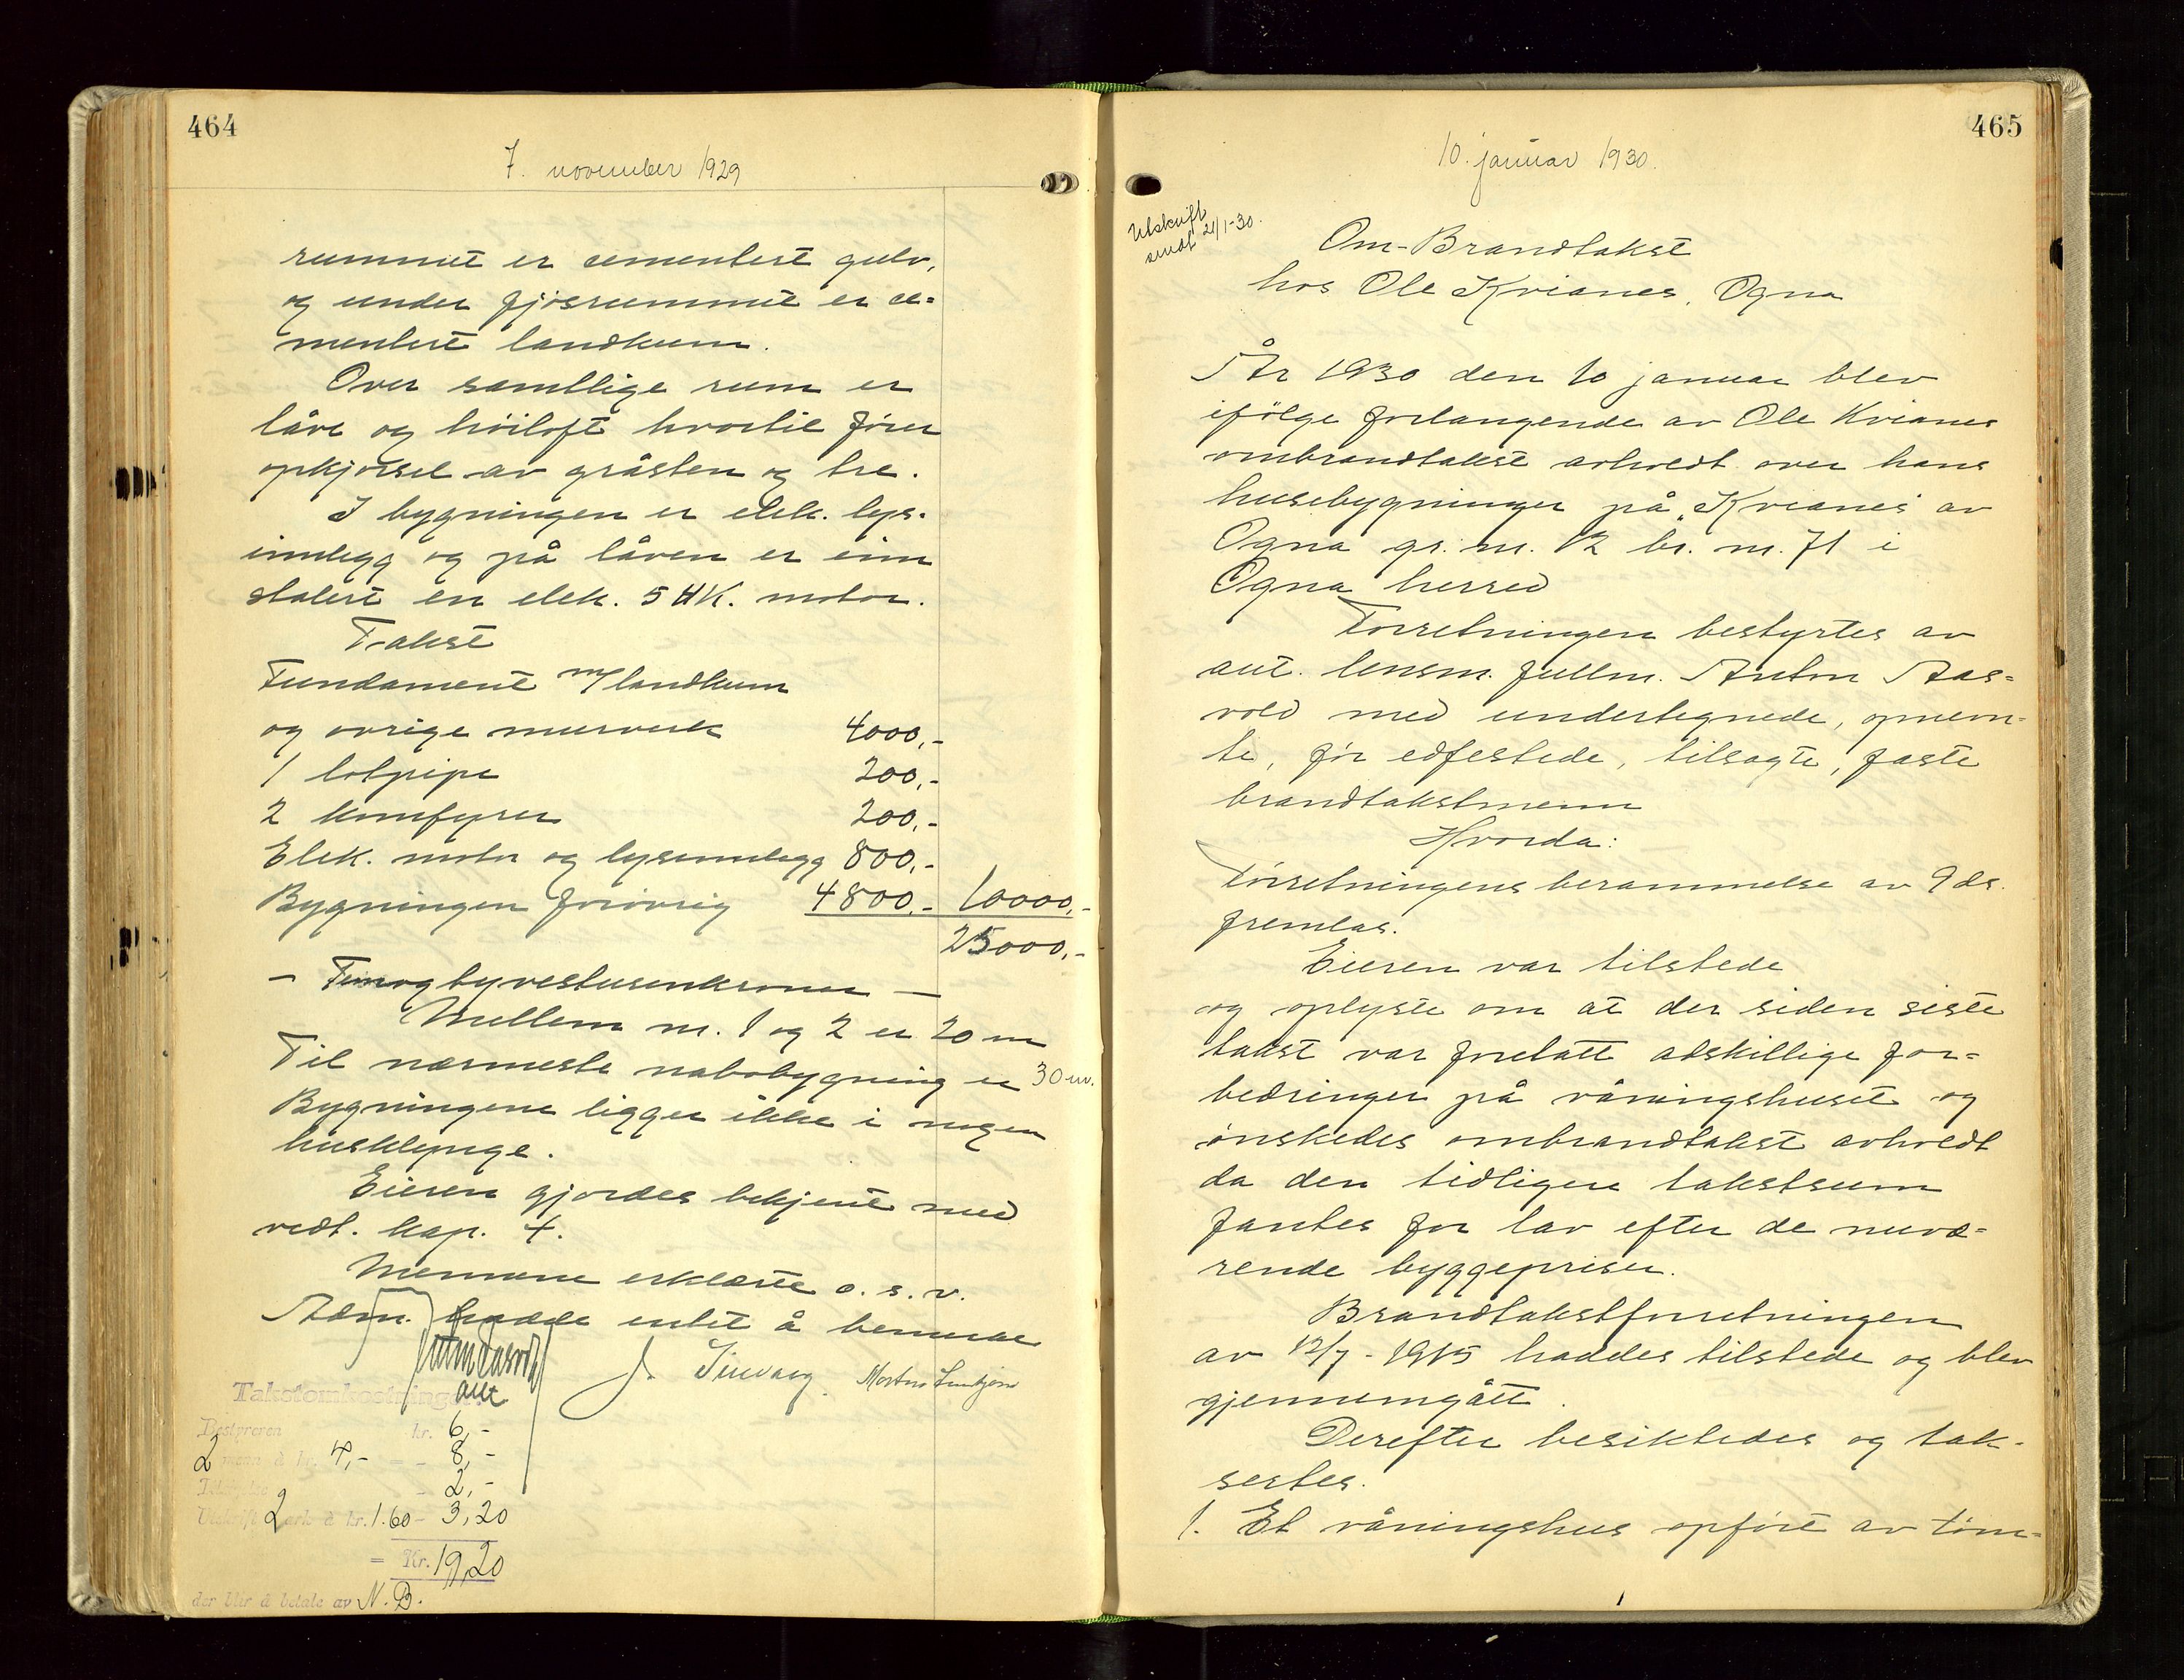 464
7. november 1929
rummet er cementert gulv,
og under fjøsrummet er ce-
mentert landkum.
Over samtlige rum er
låve og høiloft hvortil fører
opkjørsel av gråsten og tre.
I bygningen er elek. lys-
innlegg og på låven er inn
stalert en elek. 5 HK. motor.
Takst
Fundament m/landkum
og øvrige murverk 4000,-
1 lotpipe 200,-
2 komfyrer 200,-
Elek. motor og lysinnlegg 800,-
Bygningen forøvrig 4800,- 10000,-
25000,-
- Femogtyvetusenkroner -
Mellem nr. 1 og 2 er 20 m
Til nærmeste nabobygning er 30 m.
Bygningene ligger ikke i nogen
husklynge.
Eieren gjordes bekjent med
vedt. kap. 4.
Mennene erklærte o. s. v.
hadde intet å bemerke
aut
Takstomkostninger:
Bestyreren kr. 6,-
2 menn à kr. 4,- = - 8,-
- 2,-
Utskrift 2 ark à kr. 1.60 - 3,20
= Kr. 19,20
der blir å betale av N. B.
465
10. januar 1930.
Utskrift
sendt 21/1-30.
Om-Brandtakst
hos Ole Kvianes, Ogna
År 1930 den 10 januar blev
ifölge forlangende av Ole Kvianes
ombrandtakst avholdt over hans
husebygninger på "Kvianes" av
Ogna gr. nr. 12 br. nr. 71 i
Ogna herred
Forretningen bestyrtes av
aut. lensm. fullm. Anton Aas-
vold med undertegnede, opnevn-
te, før edfestede, tilsagte, faste
brandtakstmenn
Hvorda:
Forretningens berammelse av 9 ds.
fremlas.
Eieren var tilstede
og oplyste om at der siden siste
takst var foretatt adskillige for-
bedringer på våningshuset og
ønskedes ombrandtakst avholdt
da den tidligere takstsum
fantes for lav efter de nuvæ-
rende byggepriser.
Brandtakstforretningen
av 12/7 - 1915 haddes tilstede og blev
gjennemgått.
Derefter besiktedes og tak-
sertes.
1. Et våningshus opført av töm-